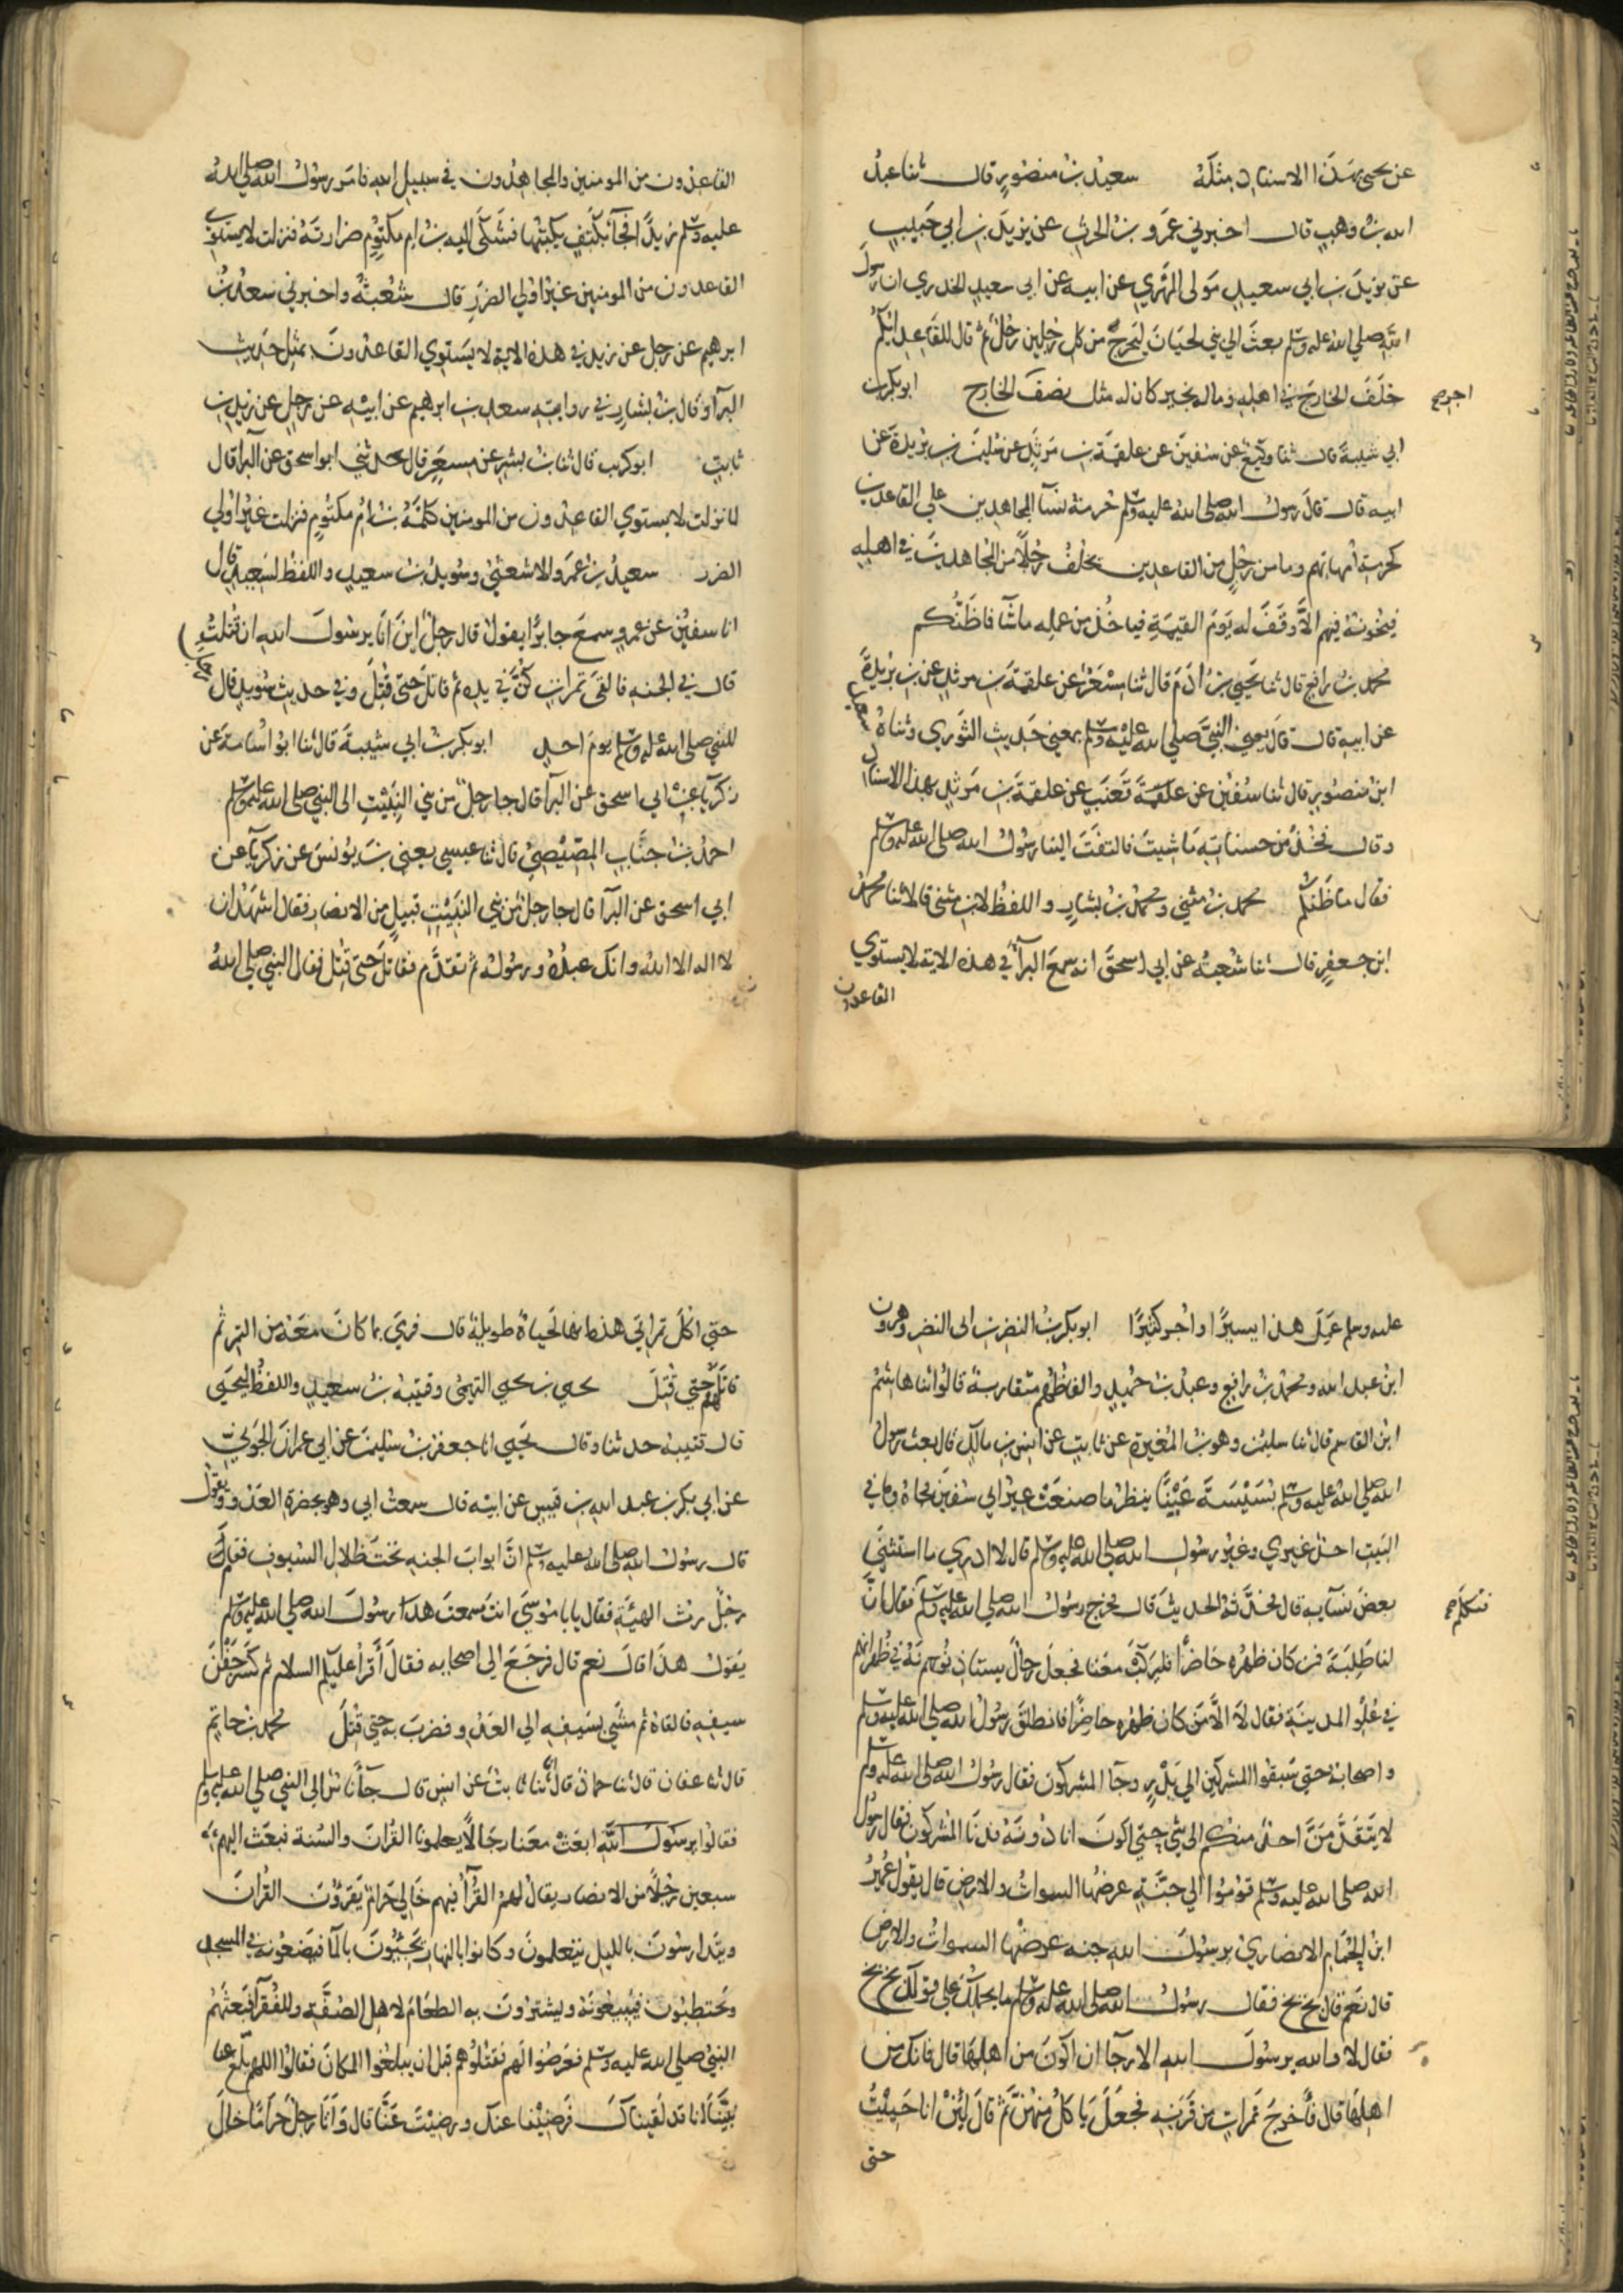 عن يحيى بهذا الاسناد مثله سعيد بن منصور قال ثنا عبد
الله بن وهب قال اخبرني عمرو بن الحرث عن يزيد بن ابي حبيب
عن يزيد بن ابي سعيد مولى المهري عن ابيه عن ابي سعيد الخدري ان رسول
الله صلي الله عليه وسلم بعث الي بني لحيان ليخرج من كل رجلين رجل ثم قال للقاعد ايكم
خلف الخارج في اهله وماله بخير كان له مثل نصف اجر الخارج ابو بكر بن
ابي شيبة قال ثنا وكيع عن سفين عن علقمة بن مرثد عن سليمن بن بريدة عن
ابيه قال قال رسول الله صلى الله عليه وسلم حرمة نسآ المجاهدين علي القاعدين
كحرمة امهاتهم وما من رجل من القاعدين يخلف رجلا من المجاهدين في اهله
فيخونه فيهم الا وقف له يوم القيمة فياخذ من عمله ما شآ فما ظنكم
محمد بن رافع قال ثنا يحيى بن ادم قال ثنا مسعر عن علقمة بن مرثد عن بن بريدة
عن ابيه قال قال يعني النبي صلي الله عليه وسلم بمعني حديث الثوري وثناه سعيد
ابن منصور قال ثنا سفين عن قعنب عن علقمة بن مرثد بهذا الاسناد
وقال فخذ من حسناته ما شيت فالتفت الينا رسول الله صلى الله عليه وسلم
فقال ما ظنكم محمد بن مثني ومحمد بن بشار واللفظ لابن مثنى قالا ثنا محمد
ابن جعفر قال ثنا شعبة عن ابي اسحق انه سمع البرآ في هذه الاية لا يستوي
القاعدون
القاعدون من المومنين والمجاهدون في سبيل الله فامر رسول الله صلى الله
عليه وسلم زيدا فجآ بكتف يكتبها فشكى اليه بن ام مكتوم ضرارته فنزلت لا يستوي
القاعدون من المومنين غير اولي الضرر قال شعبة واخبرني سعد بن
ابرهيم عن رجل عن زيد في هذه الاية لا يستوي القاعدون بمثل حديث
البرآ وقال بن بشار في روايته سعد بن ابرهيم عن ابيه عن رجل عن زيد بن
ثابت ابو كريب قال ثنا بن بشر عن مسعر قال حدثني ابو اسحق عن البرا قال
لما نزلت لا يستوي القاعدون من المومنين كلمه بن ام مكتوم فنزلت غير اولي
الضرر سعيد بن عمرو الاشعثي وسويد بن سعيد واللفظ لسعيد قال
انا سفين عن عمرو سمع جابرا يقول قال رجل اين انا يرسول الله ان قتلت
قال في الجنة فالقى تمرات كن في يده ثم قاتل حتى قتل وفي حديث سويد قال رجل
للنبي صلى الله عليه وسلم يوم احد ابو بكر بن ابي شيبة قال ثنا ابو اسامة عن
زكريآ عن ابي اسحق عن البرآ قال جا رجل من بني النبيت الى النبي صلى الله عليه وسلم
احمد بن جناب المصيصي قال ثنا عيسى يعني بن يونس عن زكريآ عن
ابي اسحق عن البرآ قال جا رجل من بني النبيت قبيل من الانصار فقال اشهد ان
لا اله الا الله وانك عبده ورسوله ثم تقدم فقاتل حتى قتل فقال النبي صلى الله
عليه وسلم عمل هذا يسيرا واجر كثيرا ابو بكر بن النضر بن ابي النضر وهرون
ابن عبد الله ومحمد بن رافع وعبد بن حميد والفاظهم متقاربة قالوا ثنا هاشم
ابن القاسم قال ثنا سليمن وهو بن المغيرة عن ثابت عن انس بن مالك قال بعث رسول
الله صلي الله عليه وسلم بسيسة عينا ينظر ما صنعت عير ابي سفين فجاه وما في
البيت احد غيري وغير رسول الله صلى الله عليه وسلم قال لا ادري ما استثني
بعض نسآيه قال فحدثه الحديث قال فخرج رسول الله صلي الله عليه وسلم فتكلم فقال ان
لنا طلبة فمن كان ظهره حاضرا فليركب معنا فجعل رجال يستاذنونه في ظهرانهم
في علو المدينة فقال لا الا من كان ظهره حاضرا فانطلق رسول الله صلي الله عليه وسلم
واصحابه حتى سبقوا المشركين الي بدر وجآ المشركون فقال رسول الله صلى الله عليه وسلم
لا يتقدمن احد منكم الى شي حتي اكون انا دونه فدنا المشركون فقال رسول
الله صلى الله عليه وسلم قوموا الي جنة عرضها السموات والارض قال يقول عمير
ابن الحمام الانصاري يرسول الله جنه عرضها السموات والارض
قال نعم قال بخ بخ فقال رسول الله صلى الله عليه وسلم ما يحملك علي قولك بخ بخ
فقال لا والله يرسول الله الا رجآ ان اكون من اهلها قال فانك من
اهلها قال فاخرج تمرات من قرنه فجعل ياكل منهن ثم قال لئن انا حييت
حتى
حتي اكل تمراتي هذه انها لحياة طويلة قال فرمى بما كان معه من التمر ثم
قاتلهم حتي قتل يحيى بن يحيى التميمي وقتيبة بن سعيد واللفظ ليحيى
قال قتيبة حدثنا وقال يحيي انا جعفر بن سليمن عن ابي عمران الجوني
عن ابي بكر بن عبد الله بن قيس عن ابيه قال سمعت ابي وهو بحضرة العدو يقول
قال رسول الله صلى الله عليه وسلم ان ابواب الجنة تحت ظلال السيوف فقام
رجل رث الهيئة فقال يابا موسى انت سمعت هذا رسول الله صلى الله عليه وسلم
يقول هذا قال نعم قال فرجع الى اصحابه فقال اقرا عليكم السلام ثم كسر جفن
سيفه فالقاه ثم مشى بسيفه الي العدو فضرب به حتي قتل محمد بن حاتم
قال ثنا عفان قال ثنا حماد قال انا ثابت عن انس قال جآ ناس الي النبي صلي الله عليه وسلم
فقالوا يرسول الله ابعث معنا رجالا يعلمونا القران والسنة فبعث اليهم
سبعين رجلا من الانصار يقال لهم القرآ فيهم خالي حرام يقرؤن القران
ويتدارسون بالليل يتعلمون وكانوا بالنهار يجيئون بالمآ فيضعونه في المسجد
ويحتطبون فيبيعونه ويشترون به الطعام لاهل الصفة وللفقرآ فبعثهم
النبي صلى الله عليه وسلم فعرضوا لهم فقتلوهم قبل ان يبلغوا المكان فقالوا اللهم بلغ عنا
نبينا انا قد لقيناك فرضينا عنك ورضيت عنا قال واتا رجل حراما خال